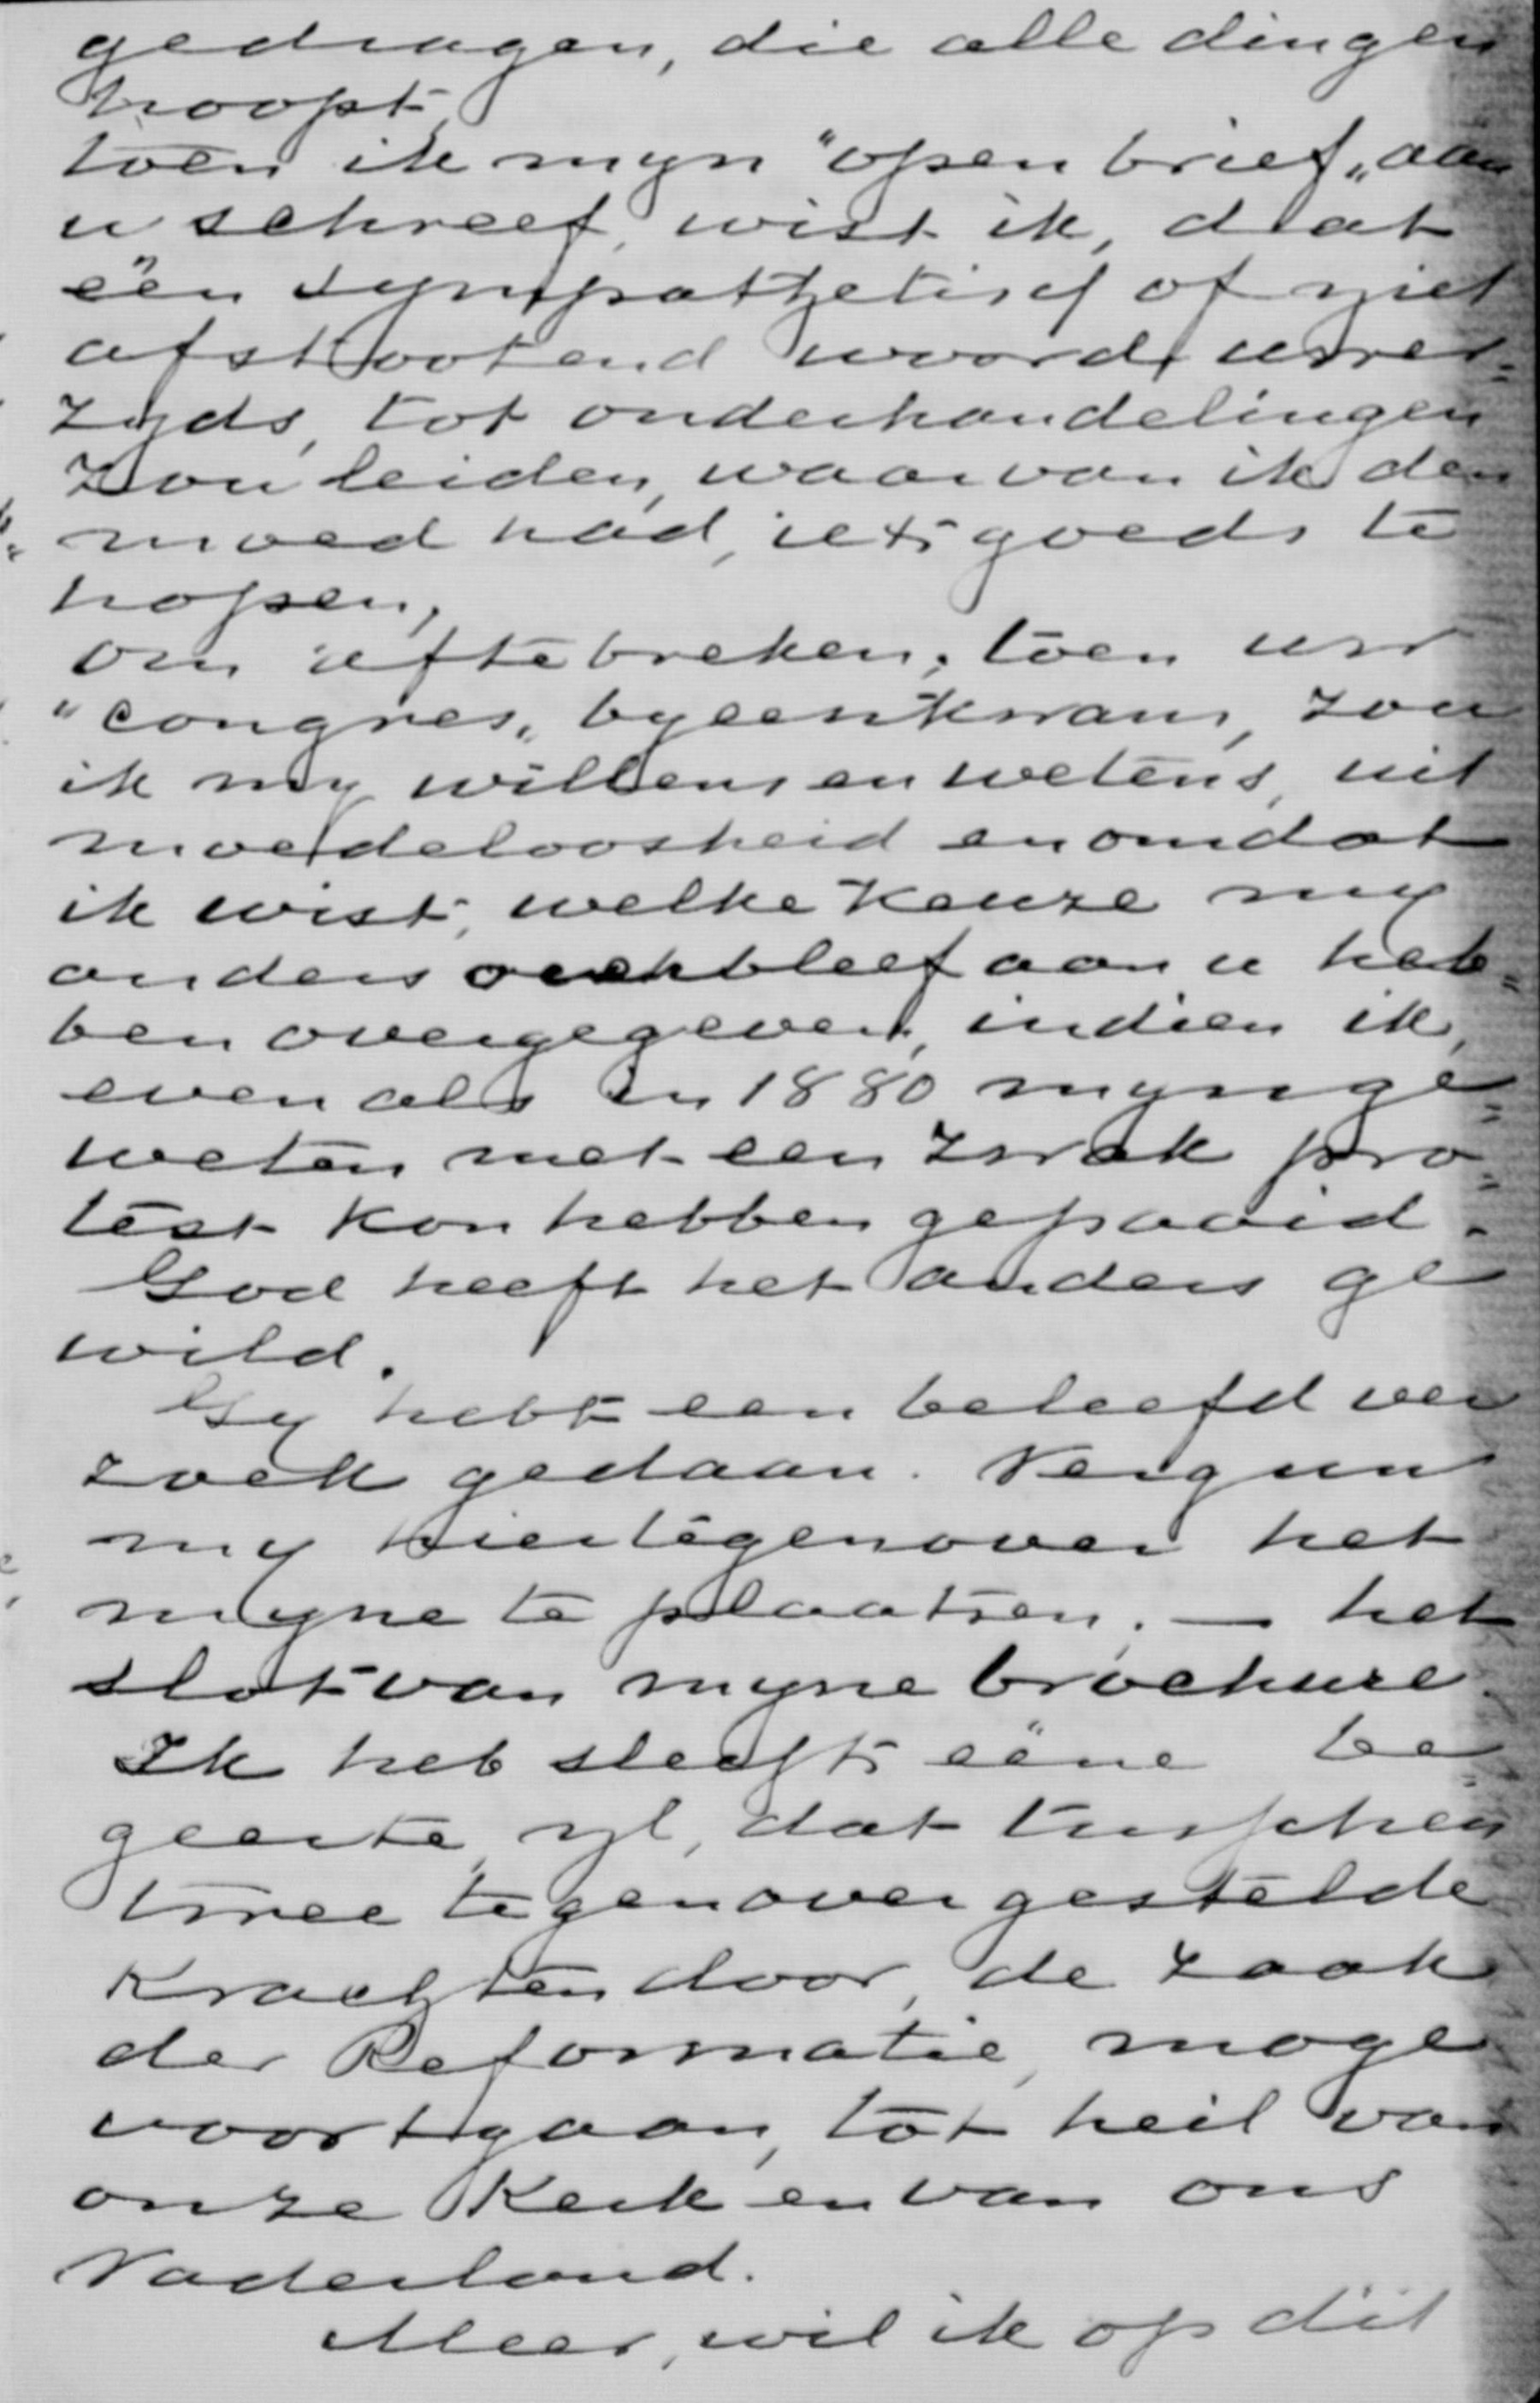 gedragen, die alle dingen
hoopt,
toen ik myn "open brief„ aan
u schreef, wist ik, dat
één sympathetisch of niet
afstootend woord uwer=
zyds, tot onderhandelingen
zou leiden, waarvan ik den
moed had, iets goeds te
hopen,
om afte breken, toen uw
"congres„ byeenkwam, zou
ik my willens en wetens, uit
moedeloosheid en omdat
ik wist, welke keuze my
anders overbleef aan u heb=
ben overgegeven, indien ik,
even als in 1880 myn ge=
weten met een zwak pro=
test kon hebben gepaaid.
God heeft het anders ge
wild.
Gy hebt een beleefd ver
zoek gedaan. Vergun
my hiertegenover het
myne te plaatsen. — het
slot van myne brochure.
Ik heb slechts ééne be=
geerte, nl, dat tusschen
twee tegenovergestelde
krachten door, de zaak
der Reformatie, moge
voortgaan, tot heil van
onze Kerk en van ons
Vaderland.
Meer, wil ik op dit